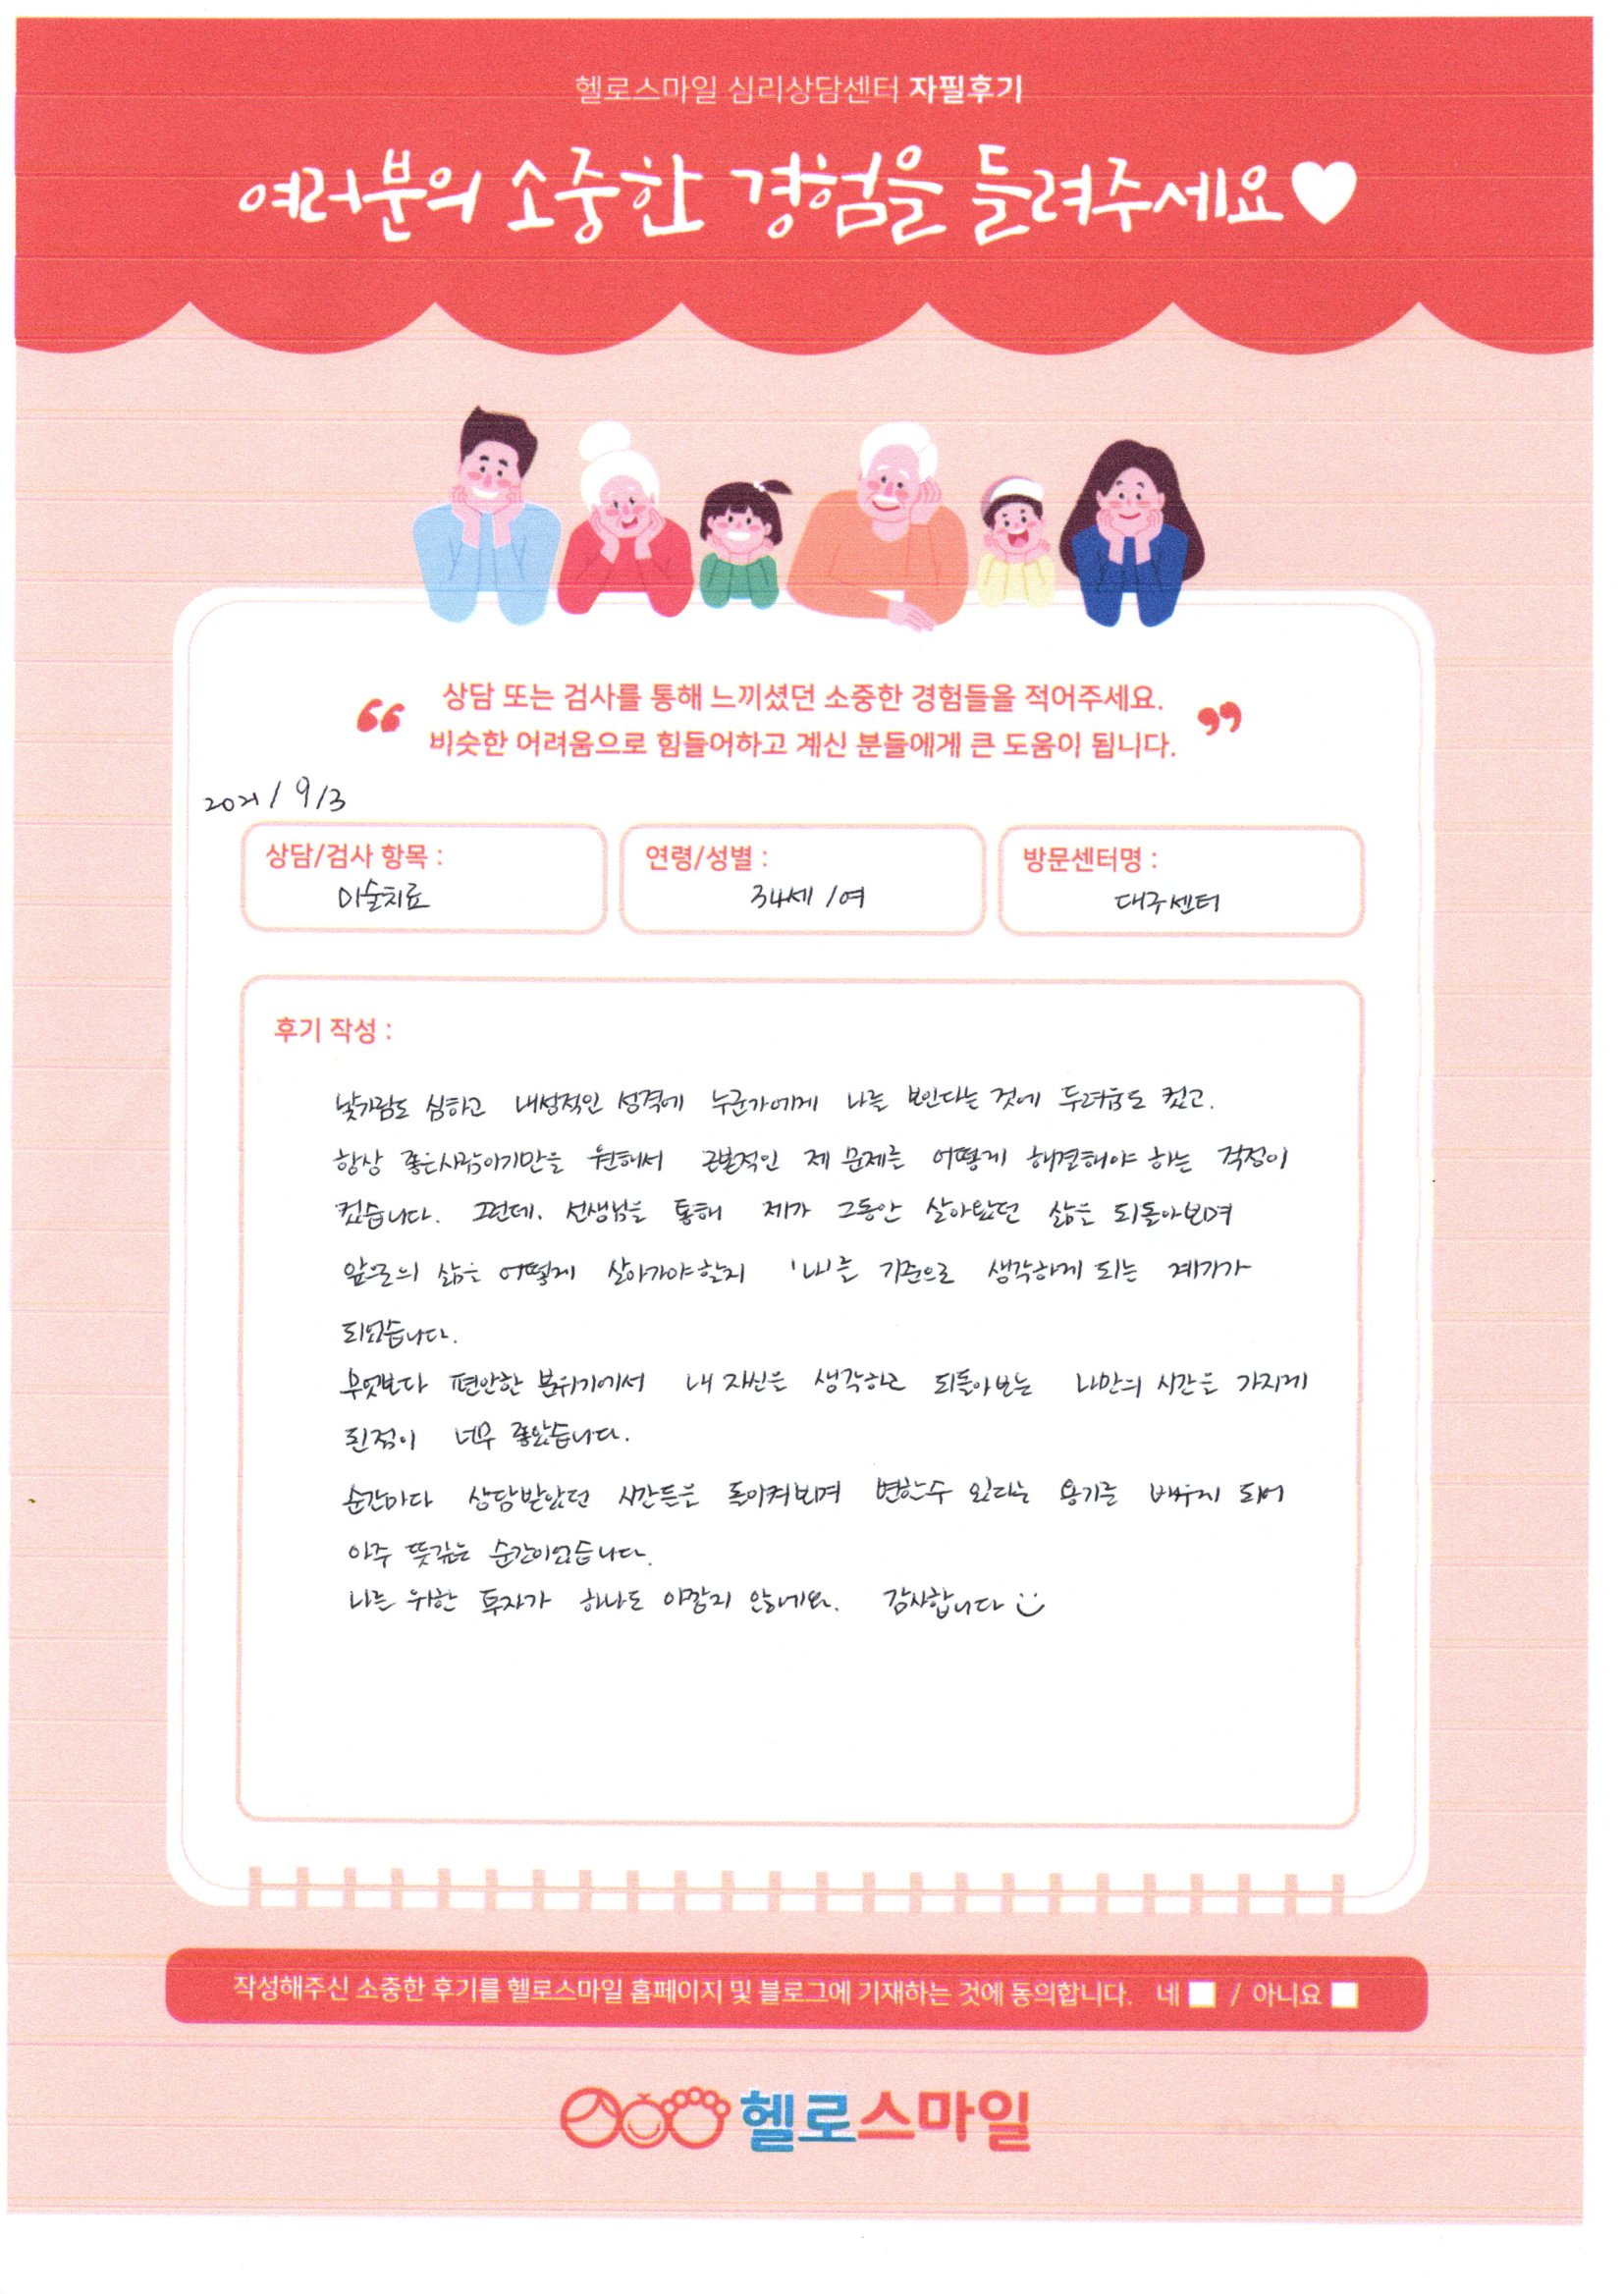 헬로스마일 심리상담센터 자필후기
여러분의 소중한 경험을 들려주세요
상담 또는 검사를 통해 느끼셨던 소중한 경험들을 적어주세요.
비슷한 어려움으로 힘들어하고 계신 분들에게 큰 도움이 됩니다.
2021/9/3
상담/검사 항목 : 연령/성별 : 방문센터명 :
미술치료 34세/여 대구센터
후기 작성 :
낯가림도 심하고 내성적인 성격에 누군가에게 나를 보인다는 것에 두려움도 컸고.
항상 좋은사람이기만을 원해서 근본적인 제 문제를 어떻게 해결해야 하는 걱정이
컸습니다. 그런데. 선생님을 통해 제가 그동안 살아왔던 삶을 되돌아보며
앞으로의 삶을 어떻게 살아가야할지 '나'를 기준으로 생각하게 되는 계기가
되었습니다.
무엇보다 편안한 분위기에서 내 자신을 생각하고 되돌아보는 나만의 시간을 가지게
된점이 너무 좋았습니다.
순간마다 상담받았던 시간들을 돌이켜보며 변할수 있다는 용기를 배우게 되어
아주 뜻깊은 순간이었습니다.
나를 위한 투자가 하나도 아깝지 않네요. 감사합니다
작성해주신 소중한 후기를 헬로스마일 홈페이지 및 블로그에 기재하는 것에 동의합니다. 네 / 아니요
헬로스마일